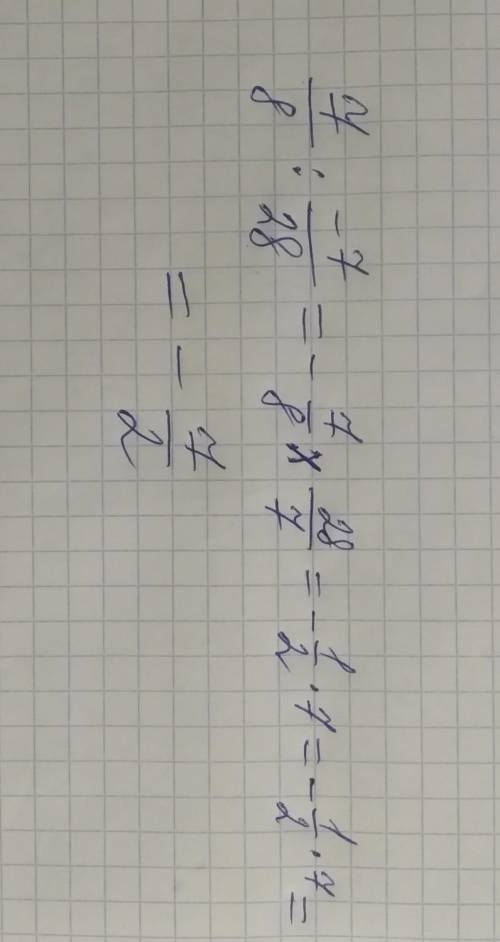 7/8 : -7/28 = - 7/8 × 28/7 = - 1/2 · 7 = - 1/2 · 7 =
= - 7/2